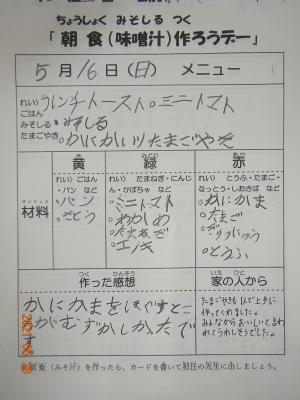 ちょうしょく みそしる つく
「朝食(味噌汁)作ろうデー」
5月16日(日) メニュー
れい)
ごはん
みそしる
たまごやき
フレンチトースト。ミニトマト
。みそしる
。かにかま入りたまごやき
黄
緑
赤
ざいりょう
材料
れい)ごはん
・パン など
れい)たまねぎ・にんじ
ん・かぼちゃ など
れい)とうふ・たまご・
なっとう・しおさば など
パン
さとう
ミニトマト
わかめ
たまねぎ
エノキ
かにかま
たまご
ぎゅうにゅう
とうふ
つく かんそう
作った感想
いえ ひと
家の人から
かにかまをほぐすとこ
ろがむずかしかったで
す
たまごやきも1人で上手に
作ってくれました。
みんながらおいしいと言わ
れてうれしそうでした。
朝食(みそ汁)を作ったら、カードを書いて担任の先生に出しましょう。